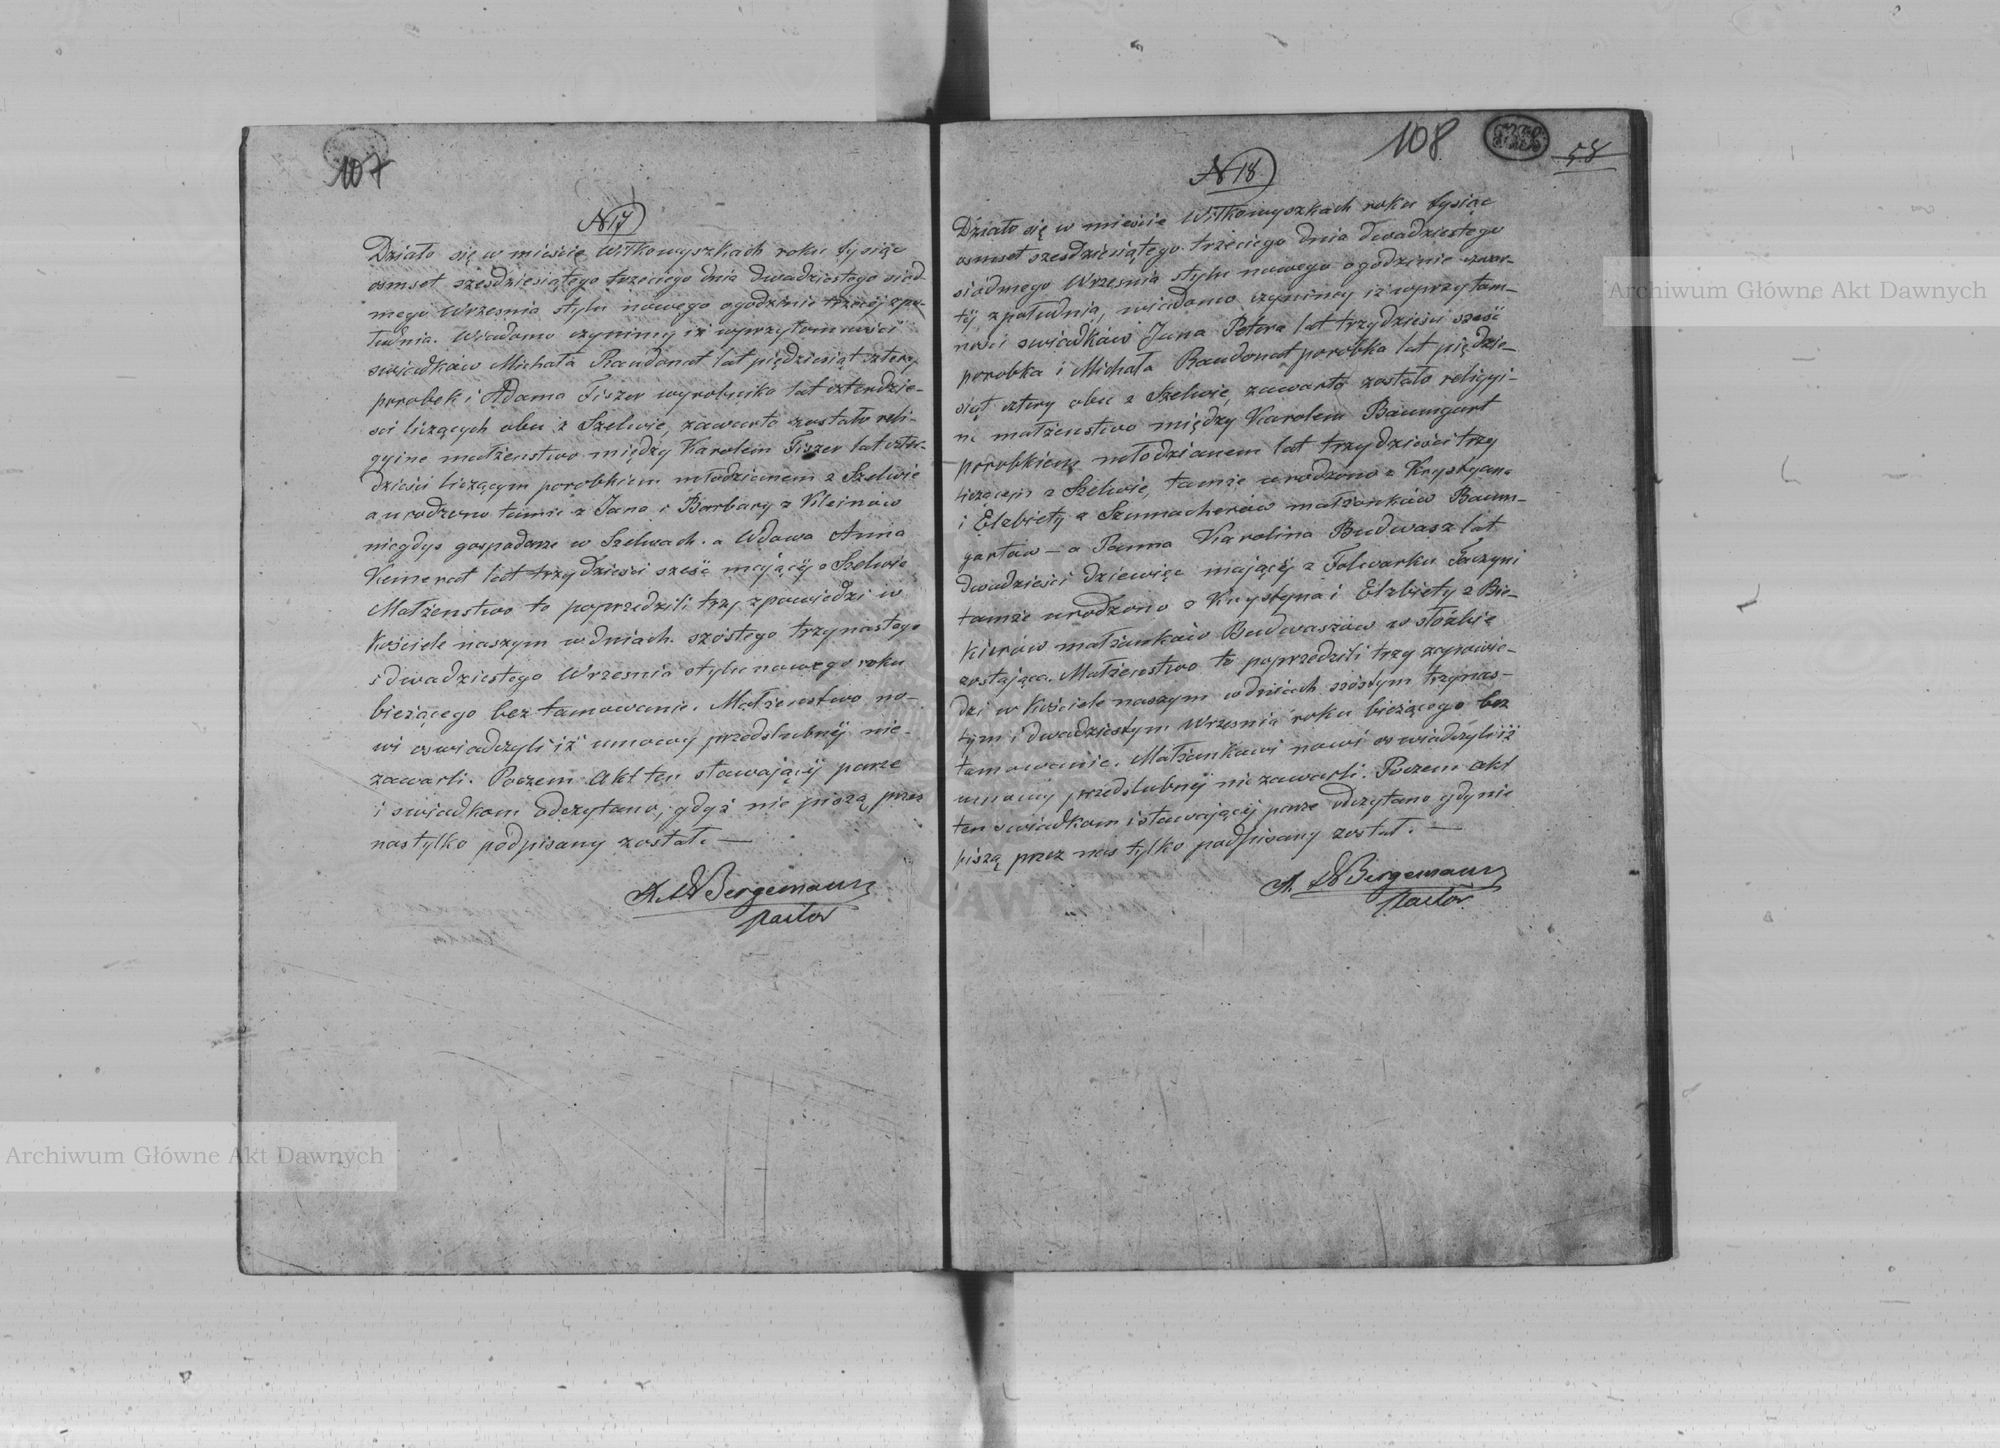 107
N 17
Działo się w mieście Wiłkowyszkach roku tysiąc
osmset sześdziesiątego trzeciego dnia dwadziestego siod-
mego Września stylu nowego ogodzinie trzeciej zpo-
łudnia. Wiadomo czynimy iż wprzytomności
swiadków Michała Raudonat lat piędziesiąt sztery
porobek i Adama Fiszer wyrobnika lat czterdzie-
sci liczących obu z Szelwie, zawarte zostało reli-
gyine małżenstwo między Karolem Fiszer lat czter-
dzieści liczącym porobkiem młodzianem z Szelwie
a urodzony tamie z Jana i Barbary z Kleinów
niegdys gospodarze w Szelwach. a Wdowa Anna
Kemerat lat trzydzieści sześć mającÿ z Szelwie
Małżenstwo to poprzedzili trzy zpowiedzi w
Kościele naszym wdniach szóstego trzynastego
i dwadziestego Września stylu nowego roku
bieżącego bez tamowanie. Małżenstwo no-
wi oswiadczyli iż umowy przedslubnÿ nie-
zawarli. Poczem Akt ten stawającÿ parze
i swiadkom odczytano, gdyż nie piszą przez
nas tylko podpisany został. —
A. W Bergemann
Pastor
108
58
N 18
Działo się w mieście Wiłkowyszkach roku tysiąc
osmset szesdziesiątego trzeciego dnia dwadziestego
siodmego Września stylu nowego ogodzinie czwar-
tÿ zpołudnia, wiadomo czynimy iż wprzytom-
ności swiadków Jana Petera lat trzydzieści sześć
porobka i Michała Raudonat porobka lat piędzie-
siąt cztery obu z Szelwie, zawarte zostało religyi-
ne małżenstwo między Karolem Baumgart
porobkiem młodzianem lat trzydzieści trzy
liczącem z Szelwie, tamże urodzono z Krystyana
i Elżbiety z Szumacherów małżonków Baum-
gartów — a Panna Karolina Budwasz lat
dwadzieści dziewięc mającÿ z Folwarku
tamże urodzono z Krystyna i Elżbiety z Bie-
kierów małżonków Budwaszów w służbie
zostająca. Małżenstwo to poprzedzili trzy zapowie-
dzi w Kościele naszym wdniach szóstym trzynas-
tym i dwadziestym Września roku bieżącego bez
tamowanie. Małżonkowi nowi oswiadczyli iż
umowy przedslubnÿ nie zawarli. Poczem akt
ten swiadkom i stawającÿ parze odczytano gdy nie
piszą przez nas tylko podpisany został. —
A. W Bergemann
Pastor
Archiwum Główne Akt Dawnych
Archiwum Główne Akt Dawnych